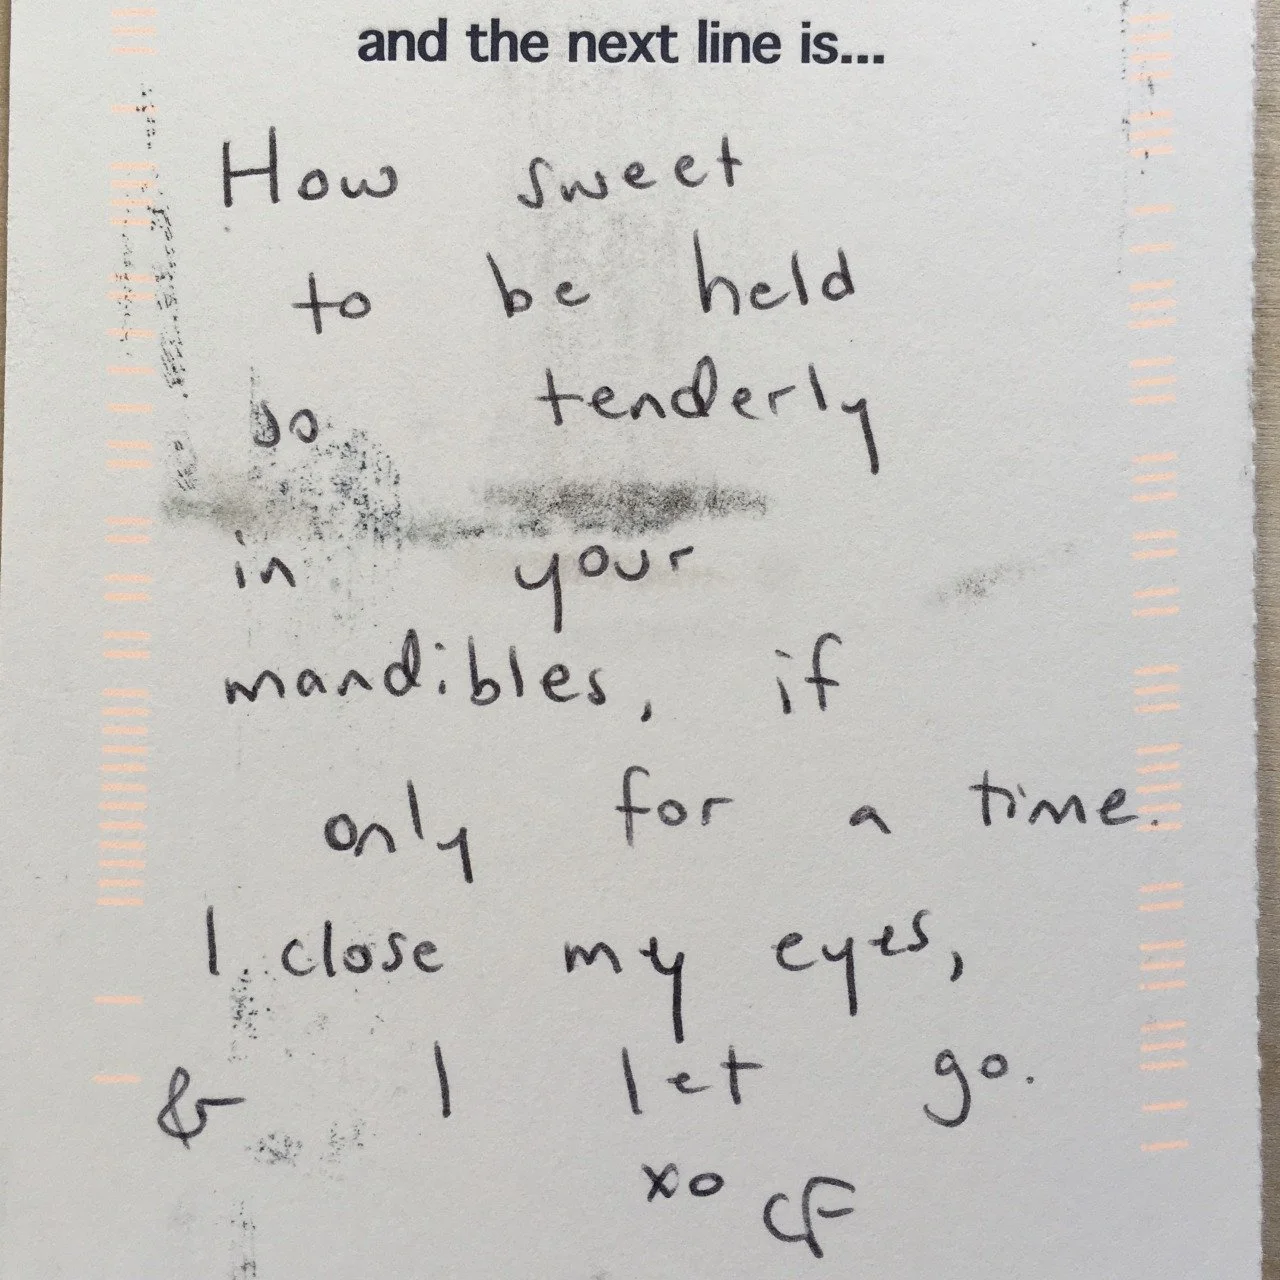 and the next line is...
How sweet
to be held
so tenderly
in your
mandibles, if
only for a time.
I close my eyes,
& I let go.
xo CF